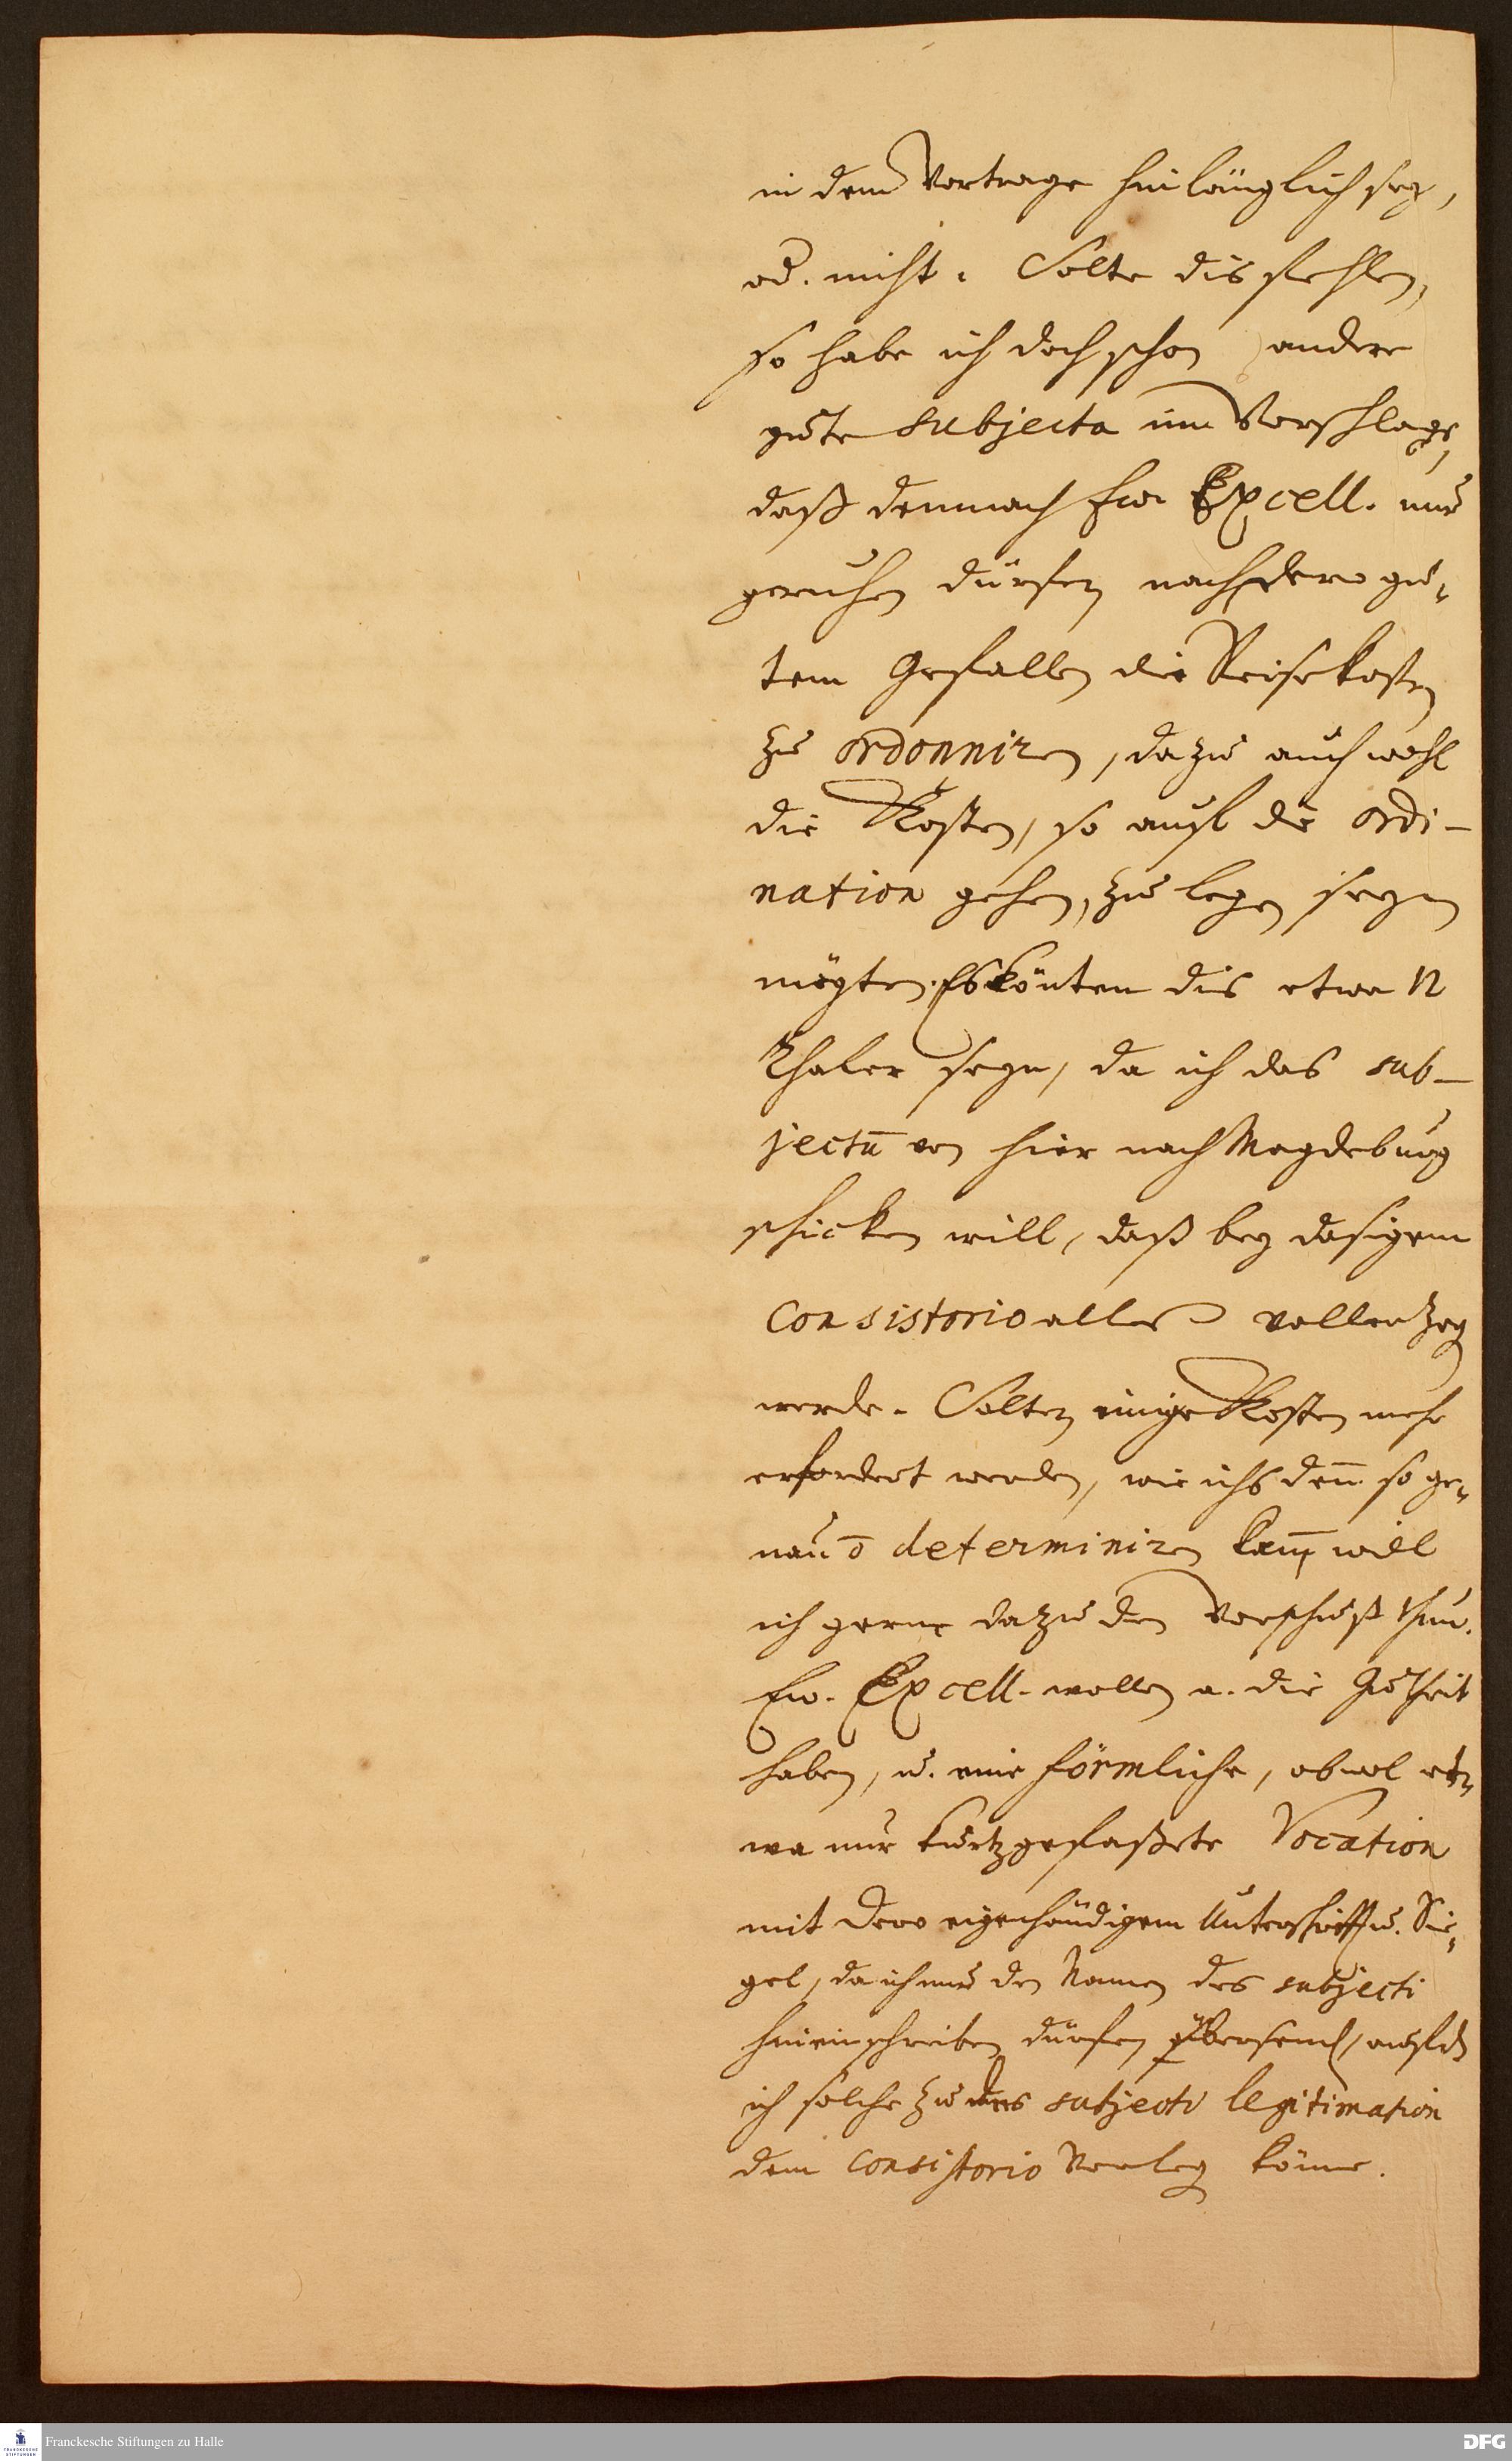 in dem Vortrage hinlänglich sey,
od. nicht. Solte dis fehlen,
so habe ich doch schon andere
gute subjecta im Vorschlage,
daß demnach Ew. Excell. nur
geruhen dürfen nach dero gu-
tem Gefallen die Reisekosten
zu ordonniren, dazu auch wohl
die Kosten, so auf die ordi-
nation gehen, zu legen seyn
mögten. Es könten dis etwa 12
Thaler seyn, da ich das sub-
jectū von hier nach Magdeburg
schicken will, daß bey dasigem
Consistorio alles vollenzog
werde. Solten einige Kosten mehr
erfordert werden, wie ichs den̄ so ge-
nau determiniren kan̄ will
ich gerne dazu den Vorschuß thun.
Ew. Excell. wollen a. die Gutheit
haben, u. eine förmliche, obwol et-
wa nur kurtzgefaßete Vocation
mit Dero eigenhändigem Unterschrifft u. Sie-
gel, da ich nur den Namen des subjecti
hineinschreiben dürfen
ich solche zu des subjecti legitimation
dem Consistorio vorleg könne.
Franckesche Stiftungen zu Halle
DFG